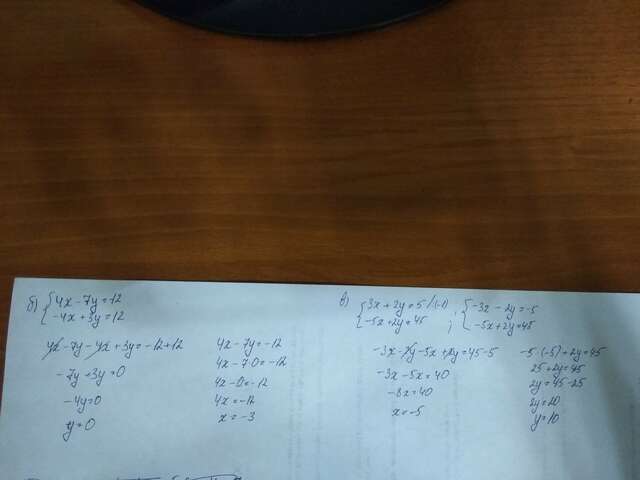 б) {4x - 7y = 12
{-4x + 3y = 12
4x - 7y - 4x + 3y = -12 + 12
-7y + 3y = 0
-4y = 0
y = 0
4x - 7y = -12
4x - 7·0 = -12
4x - 0 = -12
4x = -12
x = -3
в) {3x + 2y = 5 /·(-1) ; {-3x - 2y = -5
{-5x + 2y = 45 {-5x + 2y = 45
-3x - 2y - 5x + 2y = 45 - 5
-3x - 5x = 40
-8x = 40
x = -5
-5·(-5) + 2y = 45
25 + 2y = 45
2y = 45 - 25
2y = 20
y = 10